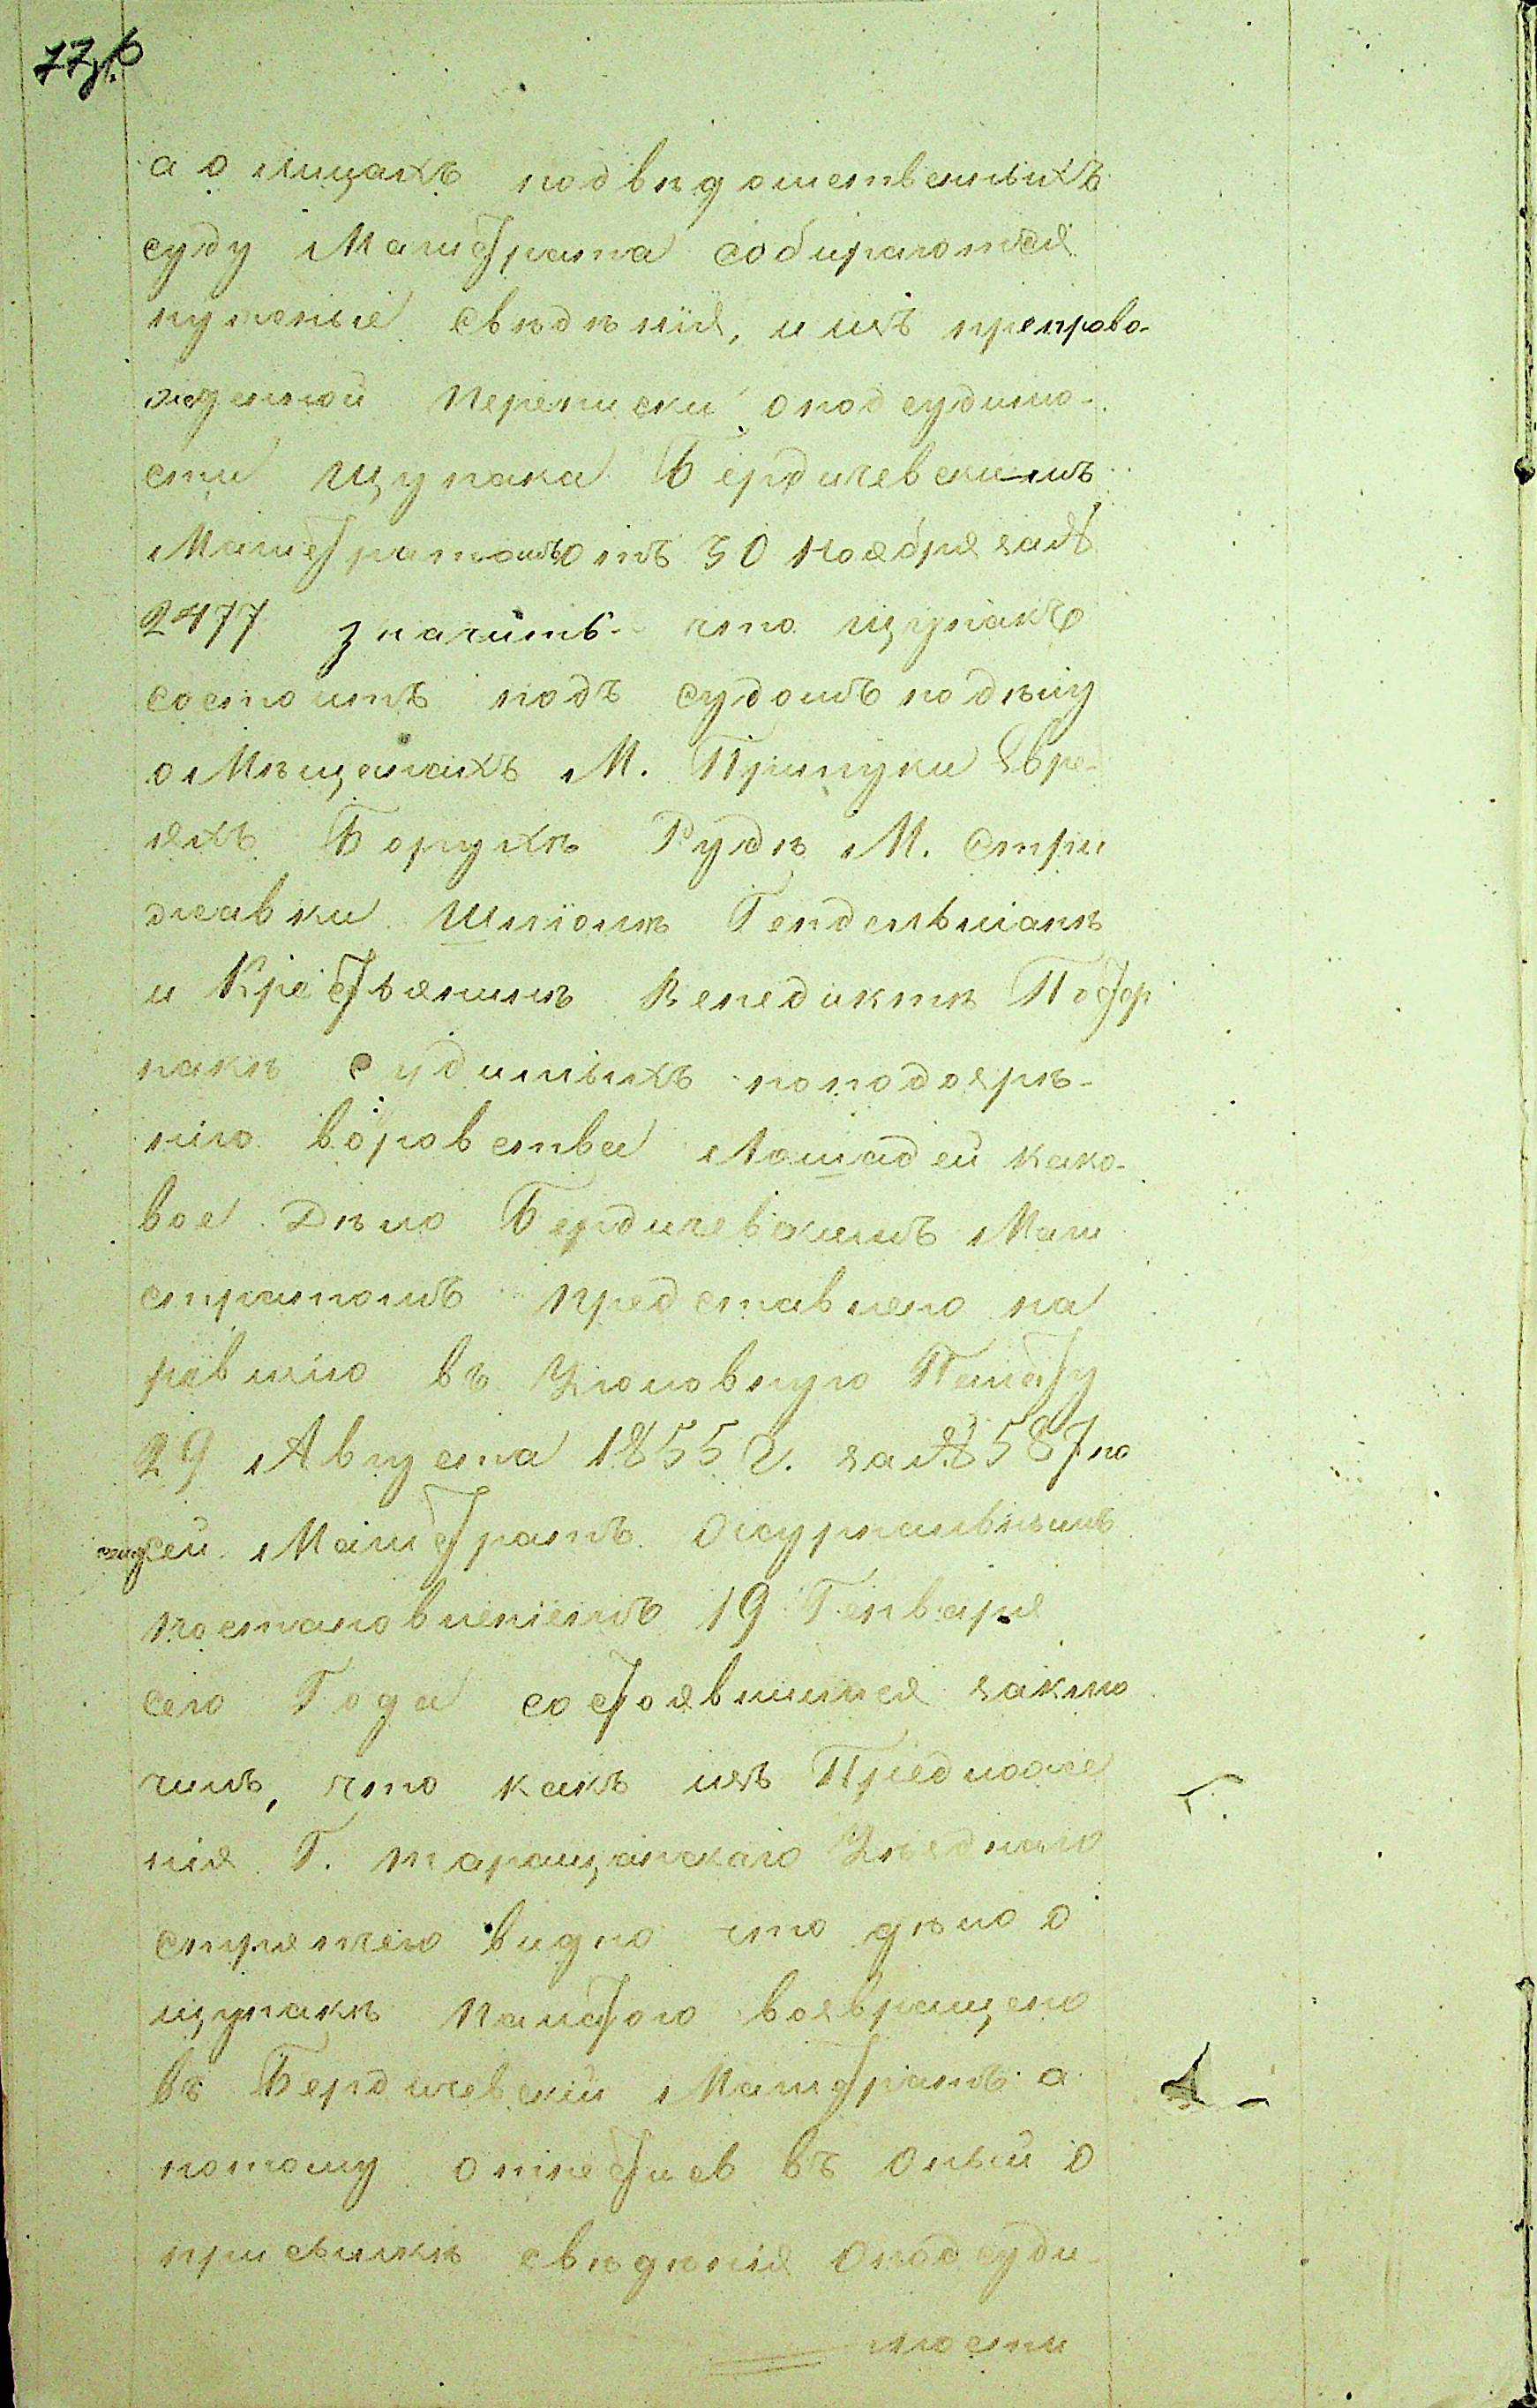 а о лицахъ подвѣдомственныхъ
суду Магистрата собираются
нужные свѣдѣнія, и изъ препрово-
жденной Переписки о подсудимо-
сти Щупака Бердичевскимъ
Магистратомъ отъ 30 Ноября за №
2477 значитъ что Щупакъ
состоитъ подъ судомъ по дѣлу
о Мѣщанахъ М. Прилуки Евре-
яхъ Борухѣ Рудѣ М. Стри
жавки Шліомѣ Гендельманѣ
и Крестьянинѣ Венедиктѣ
судимыхъ по подозрѣ-
нію воровства Лошадей како-
вое Дѣло Бердичевскимъ Маги
стратомъ представлено на
ревизію въ Уголовную Палату
29 Августа 1855 г. за № 587 по
сей Магистратъ Журнальнымъ
постановленіемъ 19 Генваря
сего Года состоявшимся заклю
чилъ, что какъ изъ Предложе
нія Г. Таращанскаго Уѣзднаго
стряпчего видно что дѣло о
Щупакѣ Палатою возвращено
въ Бердичевскій Магистратъ а
потому отнестись въ оный о
присылкѣ свѣдѣнія о подсуди-
мости